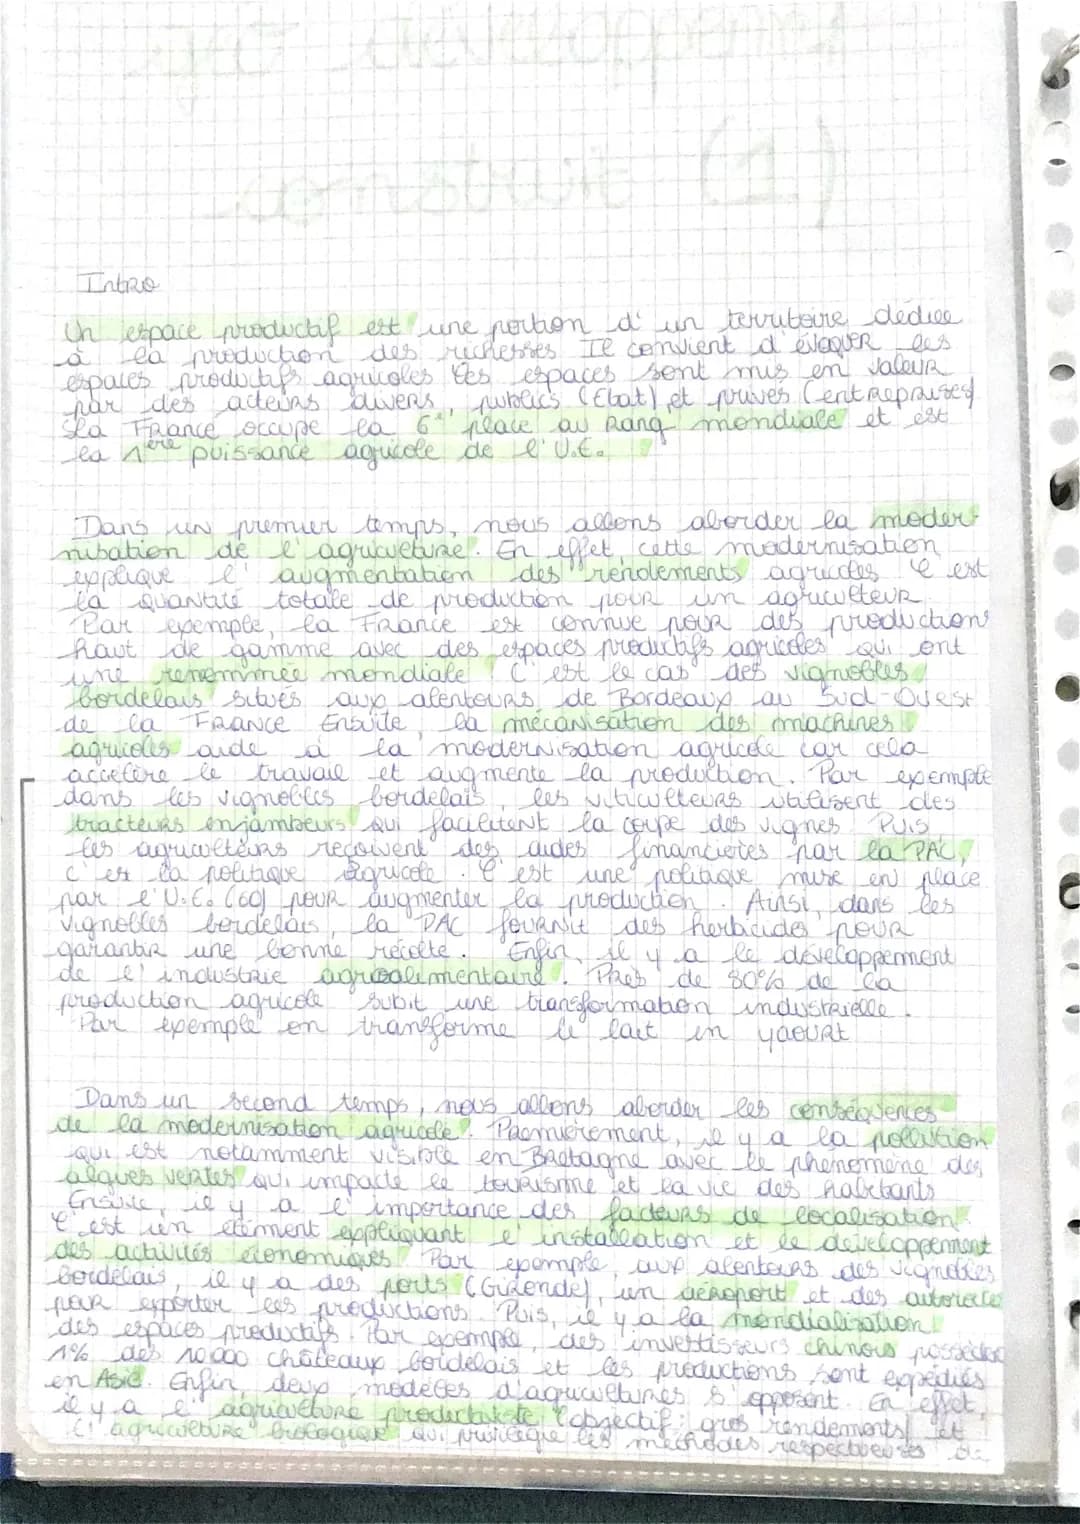 développement
construit (1)
Intro
Un espace productif est une portion d'un territoire dédiée
à la production des richesses Il convient d'évoquer les
espaces productifs agricoles Ces espaces sont mis en valeur
par des acteurs divers, publics (Etat) et privés (entreprises)
La France occupe la 6e place au rang mondiale et est
la 1ère puissance agricole de l'U.E.
Dans un premier temps, nous allons aborder la moder-
nisation de l'agriculture. En effet, cette modernisation
explique l'augmentation des rendements agricoles C'est
la quantité totale de production pour un agriculteur.
Par exemple, la France est connue pour des productions
haut de gamme avec des espaces productifs agricoles qui ont
une renommée mondiale C'est le cas des vignobles
bordelais situés aux alentours de Bordeaux au Sud-Ouest
de la France Ensuite, la mécanisation des machines
agricoles aide à la modernisation agricole car cela
accélère le travail et augmente la production. Par exemple
dans les vignobles bordelais, les viticulteurs utilisent des
tracteurs enjambeurs qui facilitent la coupe des vignes Puis,
les agriculteurs reçoivent des aides financières par la PAC,
c'es la politique agricole. C'est une politique mise en place
par l'U.E. (60) pour augmenter la production. Ainsi, dans les
vignobles bordelais, la PAC fournit des herbicides pour
garantir une bonne récolte. Enfin, il y a le développement
de l'industrie agroalimentaire. Près de 80% de la
production agricole subit une transformation industrielle.
Par exemple on transforme le lait en yaourt
Dans un second temps, nous allons aborder les conséquences
de la modernisation agricole. Premièrement, il y a la pollution
qui est notamment visible en Bretagne avec le phénomène des
algues vertes qui impacte le tourisme et la vie des habitants
Ensuite, il y a l'importance des facteurs de localisation.
C'est un élément expliquant l'installation et le développement
des activités économiques Par exemple, aux alentours des vignobles
bordelais, il y a des ports (Gironde), un aéroport et des
pour exporter les productions. Puis, il y a la mondialisation
des espaces productifs. Par exemple, des investisseurs chinois
1% des 10 000 châteaux bordelais et les productions sont expédiés
en Asie. Enfin, deux modèles d'agricultures s'opposent. En effet,
il y a l'agriculture productiviste (objectif: gros rendements) et
l'agriculture biologique qui privilégie les méthodes respectueuses